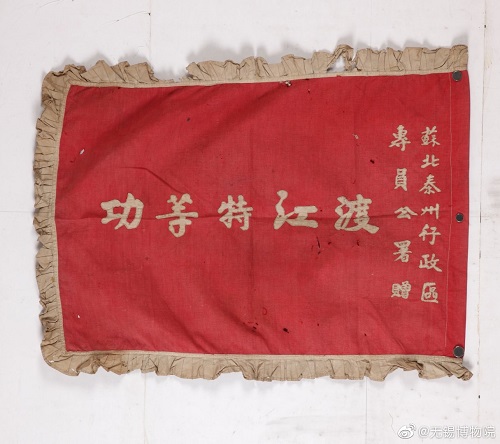 蘇北泰州行政區
專員公署贈
渡江特等功
@无锡博物院